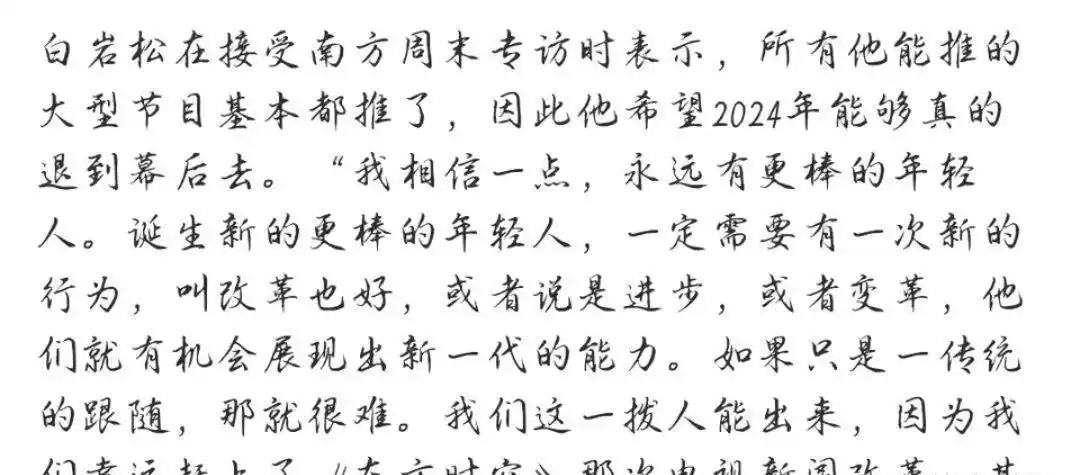 白岩松在接受南方周末专访时表示，所有他能推的
大型节目基本都推了，因此他希望2024年能够真的
退到幕后去。“我相信一点，永远有更棒的年轻
人。诞生新的更棒的年轻人，一定需要有一次新的
行为，叫改革也好，或者说是进步，或者变革，他
们就有机会展现出新一代的能力。如果只是一传统
的跟随，那就很难。我们这一拨人能出来，因为我
们幸运赶上了《东方时空》那次电视新闻改革